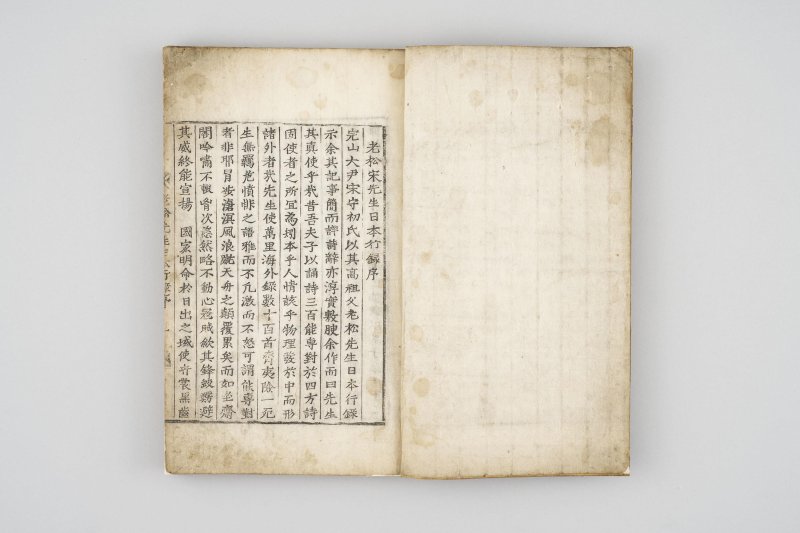 老松宋先生日本行録序
完山大尹宋守初氏以其高祖父老松先生日本行録
示余其記事簡而詳詩辭亦淳實敦余作而曰先生
其真使乎哉昔吾夫子以誦詩三百能專對於四方詩
固使者之所宜為本乎人情該乎物理發於中而形
諸外者哉先生使萬里海外録數十百首齊夷險一
生無羈危憤悱之語雅而不激而不怒可謂能專對
者非耶冒蛟滄溟風浪天舟之顛覆累矣而如坐齋
閤吟嘯不輟胸次悠然略不動心冦賊斂其鋒避
其威終能宣揚 國家明命於日出之域使黑齒